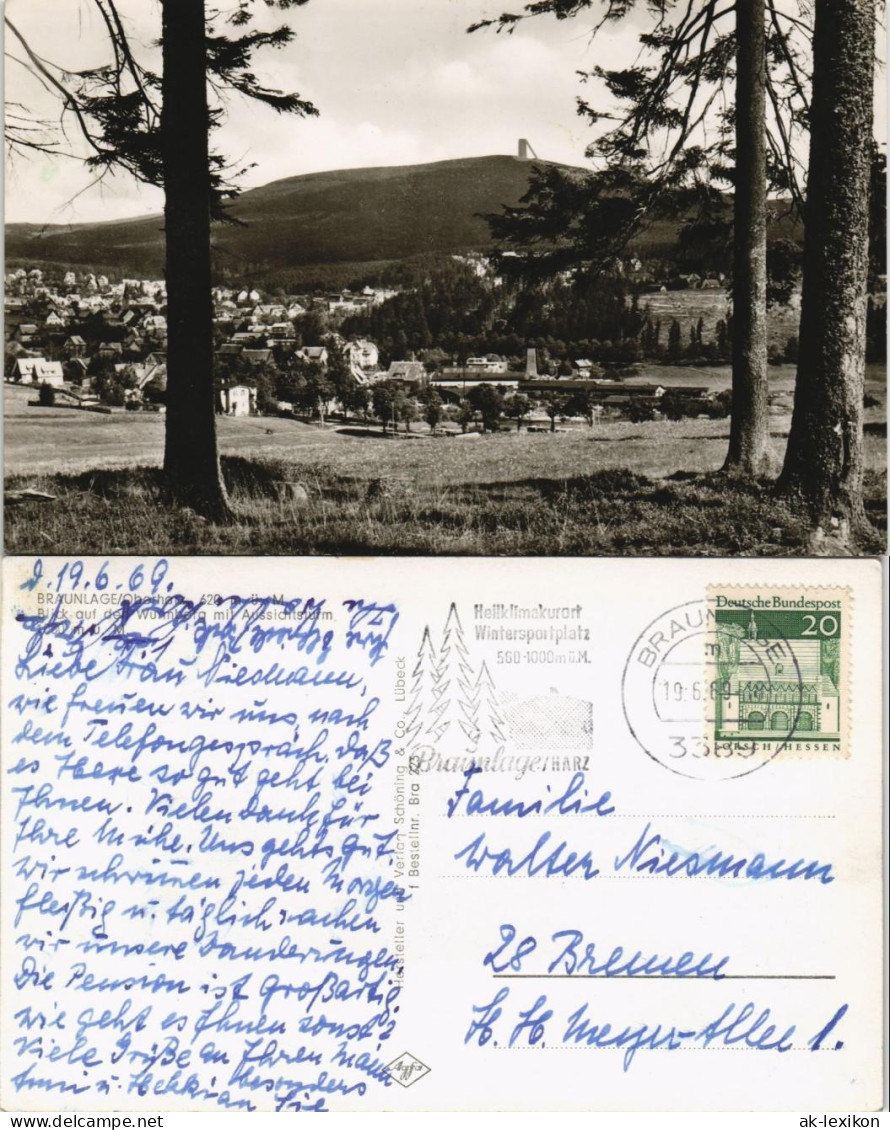 d. 19.6.69.
BRAUNLAGE/Oberharz, 620 m ü. M.
Blick auf den Wurmberg mit Aussichtsturm
Liebe Frau Niesmann,
wie freuen wir uns nach
dem Telefongespräch, daß
es Ihnen so gut geht bei
Ihnen. Vielen Dank für
Ihre Mühe. Uns geht's gut.
wir schwimmen jeden Morgen
fleißig u. täglich machen
wir unsere Wanderungen
Die Pension ist großartig
wie geht es Ihnen sonst?
Viele Grüße an Ihren Mann
besonders
Sie
Hersteller und Verlag Schöning & Co., Lübeck
Bestellnr. Bra
Agfa
Heilklimakurort
Wintersportplatz
560-1000m ü.M.
Braunlage/HARZ
BRAUNLAGE
19.6.69
3389
Deutsche Bundespost
20
LORSCH/HESSEN
Familie
Walter Niesmann
28 Bremen
H. H. Meyer-Allee 1.
ak-lexikon.com